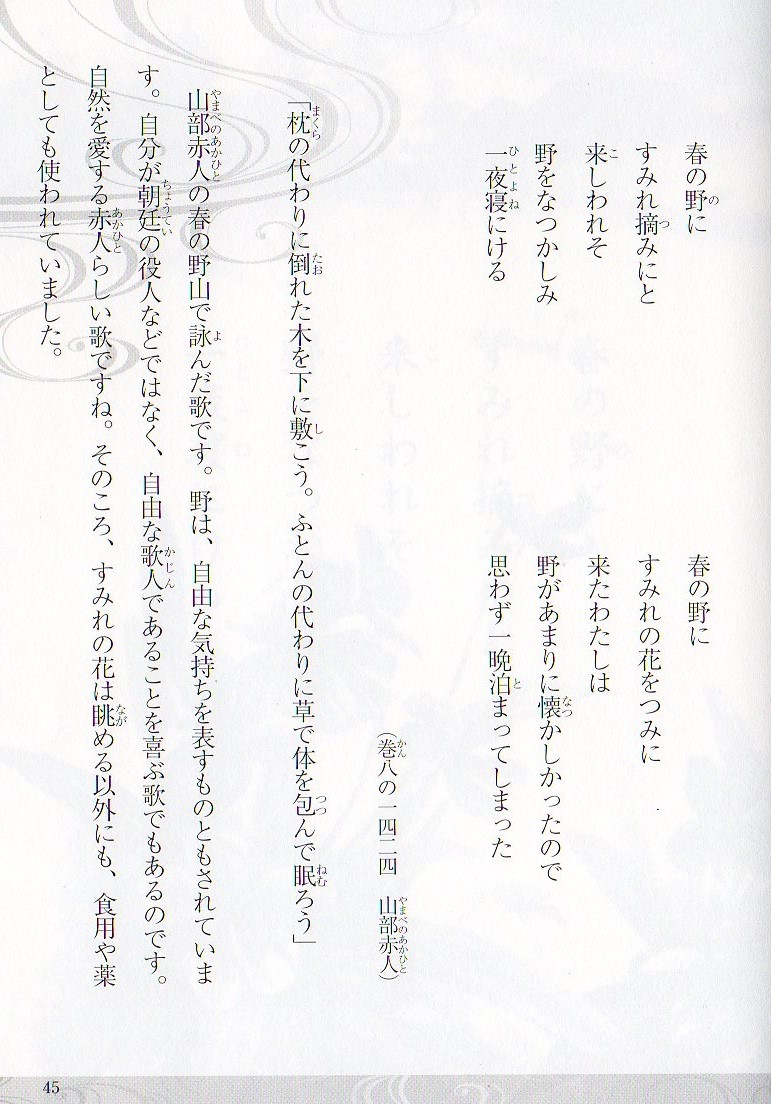 春の野に
すみれ摘みにと
来しわれそ
野をなつかしみ
一夜寝にける
春の野に
すみれの花をつみに
来たわたしは
野があまりに懐かしかったので
思わず一晩泊まってしまった
（巻八の一四二四　山部赤人）
「枕の代わりに倒れた木を下に敷こう。ふとんの代わりに草で体を包んで眠ろう」
山部赤人の春の野山で詠んだ歌です。野は、自由な気持ちを表すものともされていま
す。自分が朝廷の役人などではなく、自由な歌人であることを喜ぶ歌でもあるのです。
自然を愛する赤人らしい歌ですね。そのころ、すみれの花は眺める以外にも、食用や薬
としても使われていました。
45